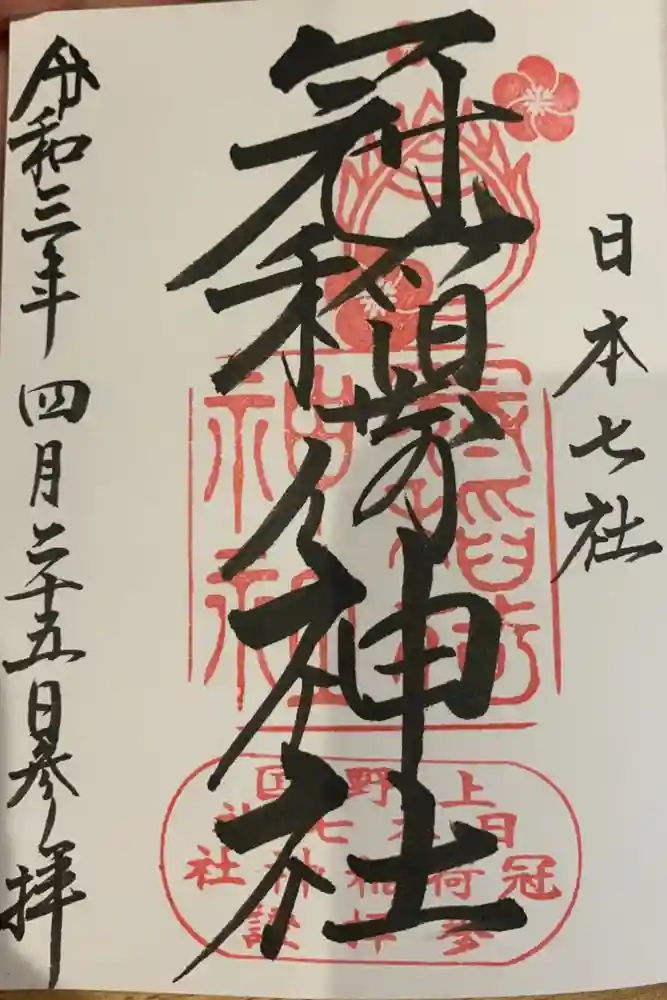 日本七社
冠稲荷神社
令和三年四月二十五日参拝
冠稲荷
神社
上野国
日本七社
冠稲荷神社
参拝證